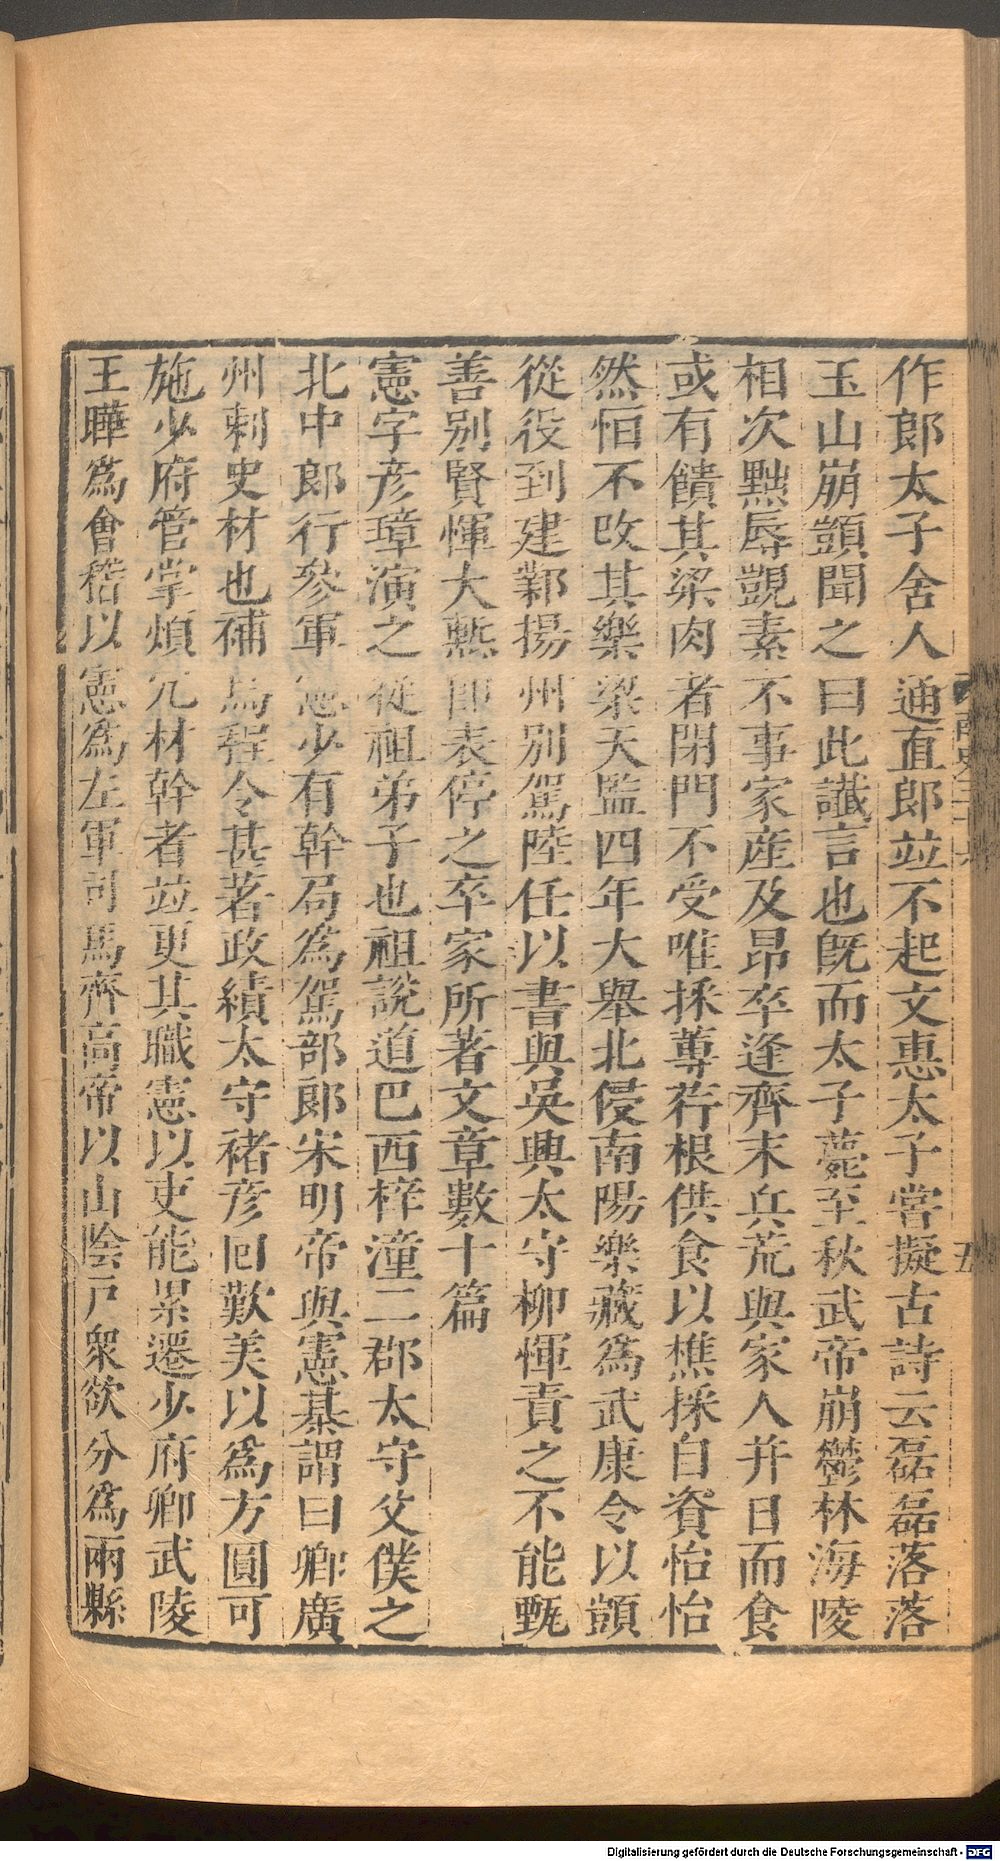 作郎太子舍人通直郎竝不起文惠太子嘗擬古詩云磊磊落落
玉山崩顗聞之曰此讖言也旣而太子薨至秋武帝崩鬱林海陵
相次黜辱覬素不事家産及昂卒逢齊末兵荒與家人并日而食
或有饋其梁肉者閉門不受唯採蓴荇根供食以樵採自資怡怡
然恒不改其樂梁天監四年大舉北侵南陽樂藏為武康令以顗
從役到建鄴揚州別駕陸任以書與吳興太守柳惲責之不能甄
善別賢惲大慙即表停之卒家所著文章數十篇
憲字彦璋演之從祖弟子也祖說道巴西梓潼二郡太守父僕之
北中郎行參軍憲少有幹局為駕部郎宋明帝與憲棊謂曰卿廣
州刺史材也補烏程令甚著政績太守褚彦回歎美以為方圓可
施少府管掌煩冗材幹者竝更其職憲以吏能累遷少府卿武陵
王曄為會稽以憲為左軍司馬齊高帝以山陰戶衆欲分為兩縣
五
Digitalisierung gefördert durch die Deutsche Forschungsgemeinschaft - DFG